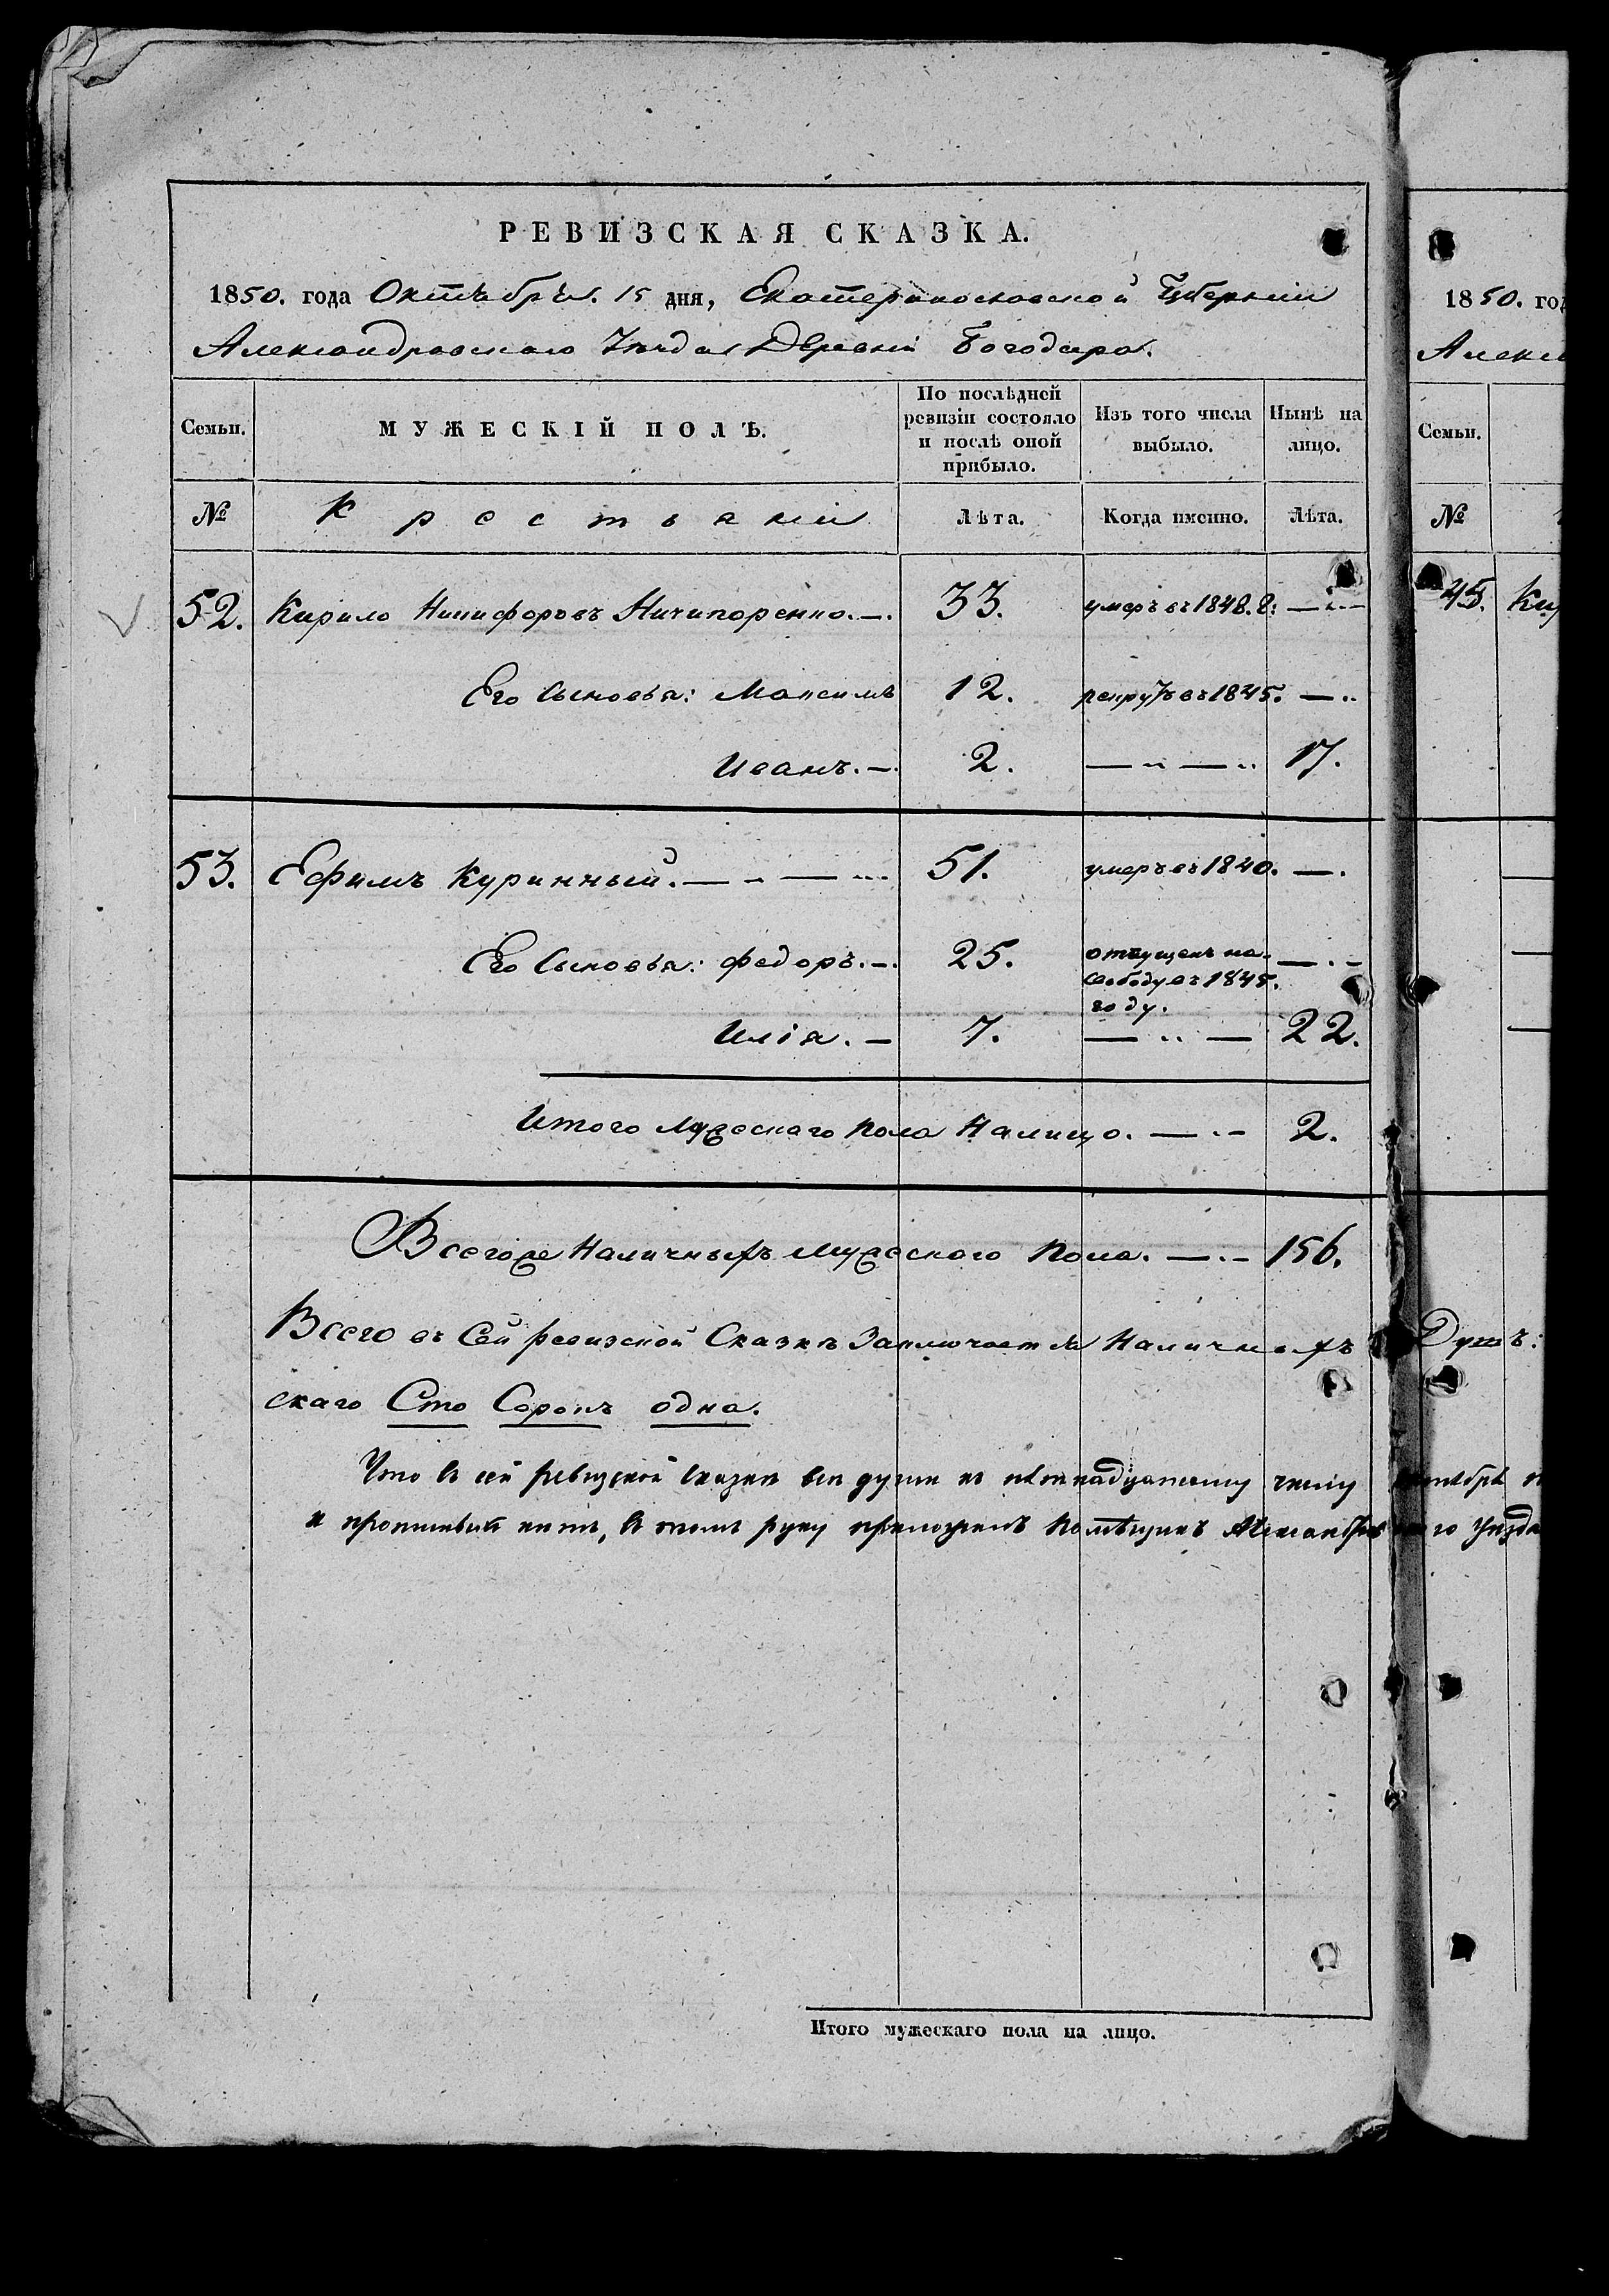 РЕВИЗСКАЯ СКАЗКА.
1850. года Октября. 15 дня, Екатеринославской Губерніи
Александровскаго Уѣзда Деревни Богодара.
Семьи. МУЖЕСКІЙ ПОЛЪ. По послѣдней ревизіи состояло и послѣ оной прибыло. Изъ того числа выбыло. Нынѣ на лицо.
№ Крестьяни Лѣта. Когда именно. Лѣта.
52. Кирило Никифоровъ Ничипоренко. 33. умеръ въ 1848.
Его Сыновья: Максимъ 12. рекрутъ въ 1845.
Иванъ. 2. 17.
53. Ефимъ Куринный. 51. умеръ въ 1840.
Его Сыновья: Федоръ. 25. отпущенъ на
свободу въ 1845.
году.
Илія. 7. 22.
Итого Мужескаго Пола Налицо. 2.
Всегоже Наличныхъ Мужескаго Пола. 156.
Всего въ Сей Ревизской Сказкѣ Заключается Наличныхъ Душъ:
скаго Сто Сорокъ одна.
Что въ сей ревизской сказкѣ всѣ души къ пятнадцатому числу октября
и прописаны, въ томъ руку приложилъ Помѣщикъ Александровскаго Уѣзда
Итого мужескаго пола на лицо.
1850. год
Алекс
Семьи.
№
45. Ки